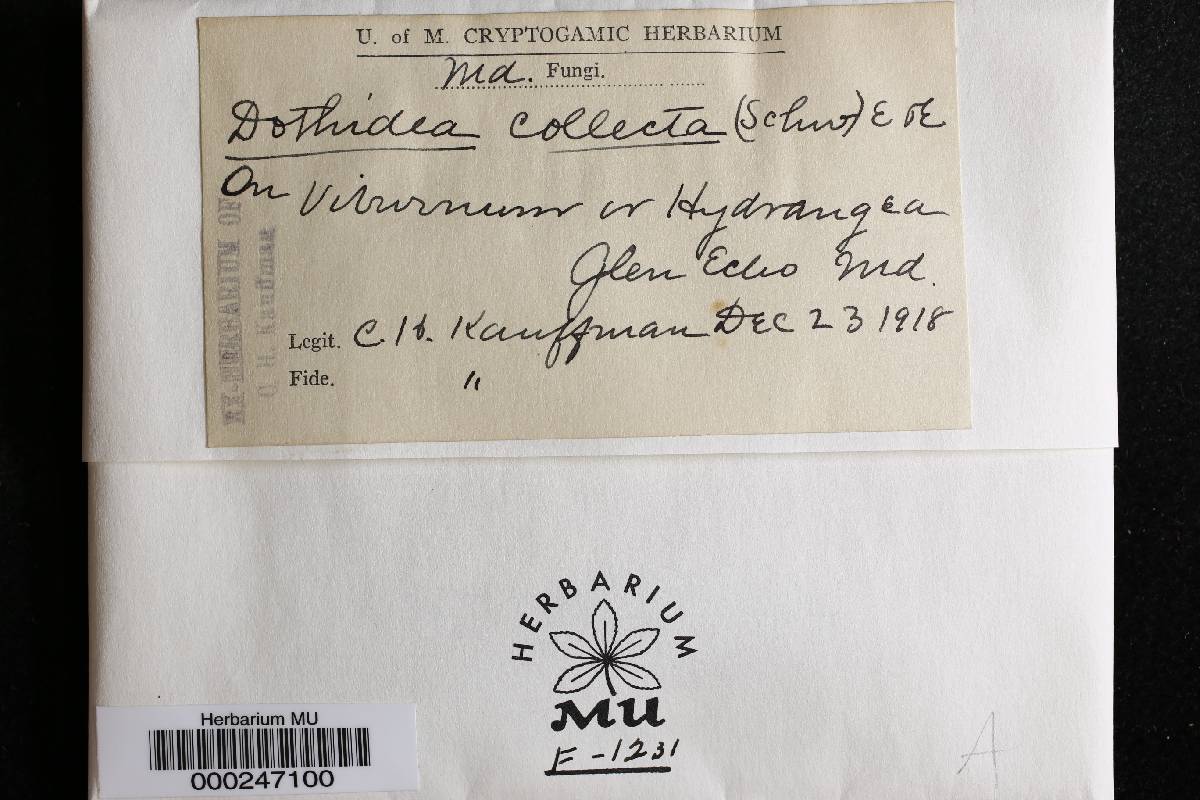 U. of M. CRYPTOGAMIC HERBARIUM
Md. Fungi.
Dothidea collecta (Schw) E & E
On Viburnum or Hydrangea
Glen Echo Md.
Legit. C. H. Kauffman Dec 23 1918
Fide. "
EX-HERBARIUM OF
C. H. Kauffman
HERBARIUM
MU
F-1231
Herbarium MU
000247100
A